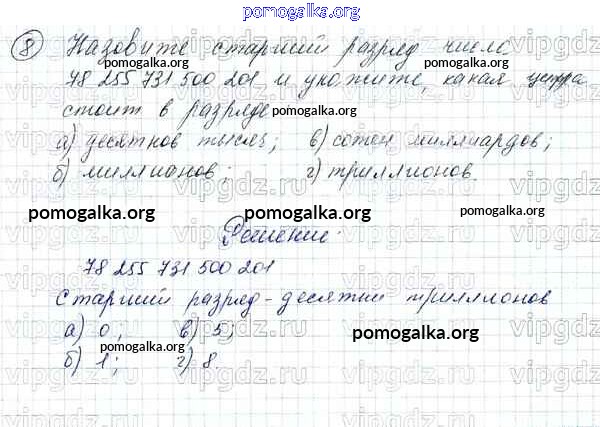 pomogalka.org
8 Назовите старший разряд числа
pomogalka.org pomogalka.org
78 255 731 500 201 и укажите, какая цифра
стоит в разряде pomogalka.org
а) десятков тысяч; в) сотен миллиардов;
б) миллионов; г) триллионов.
pomogalka.org pomogalka.org pomogalka.org
Решение:
78 255 731 500 201
Старший разряд - десятки триллионов
а) 0; в) 5; pomogalka.org
pomogalka.org
б) 1; г) 8.
vipgdz.ru